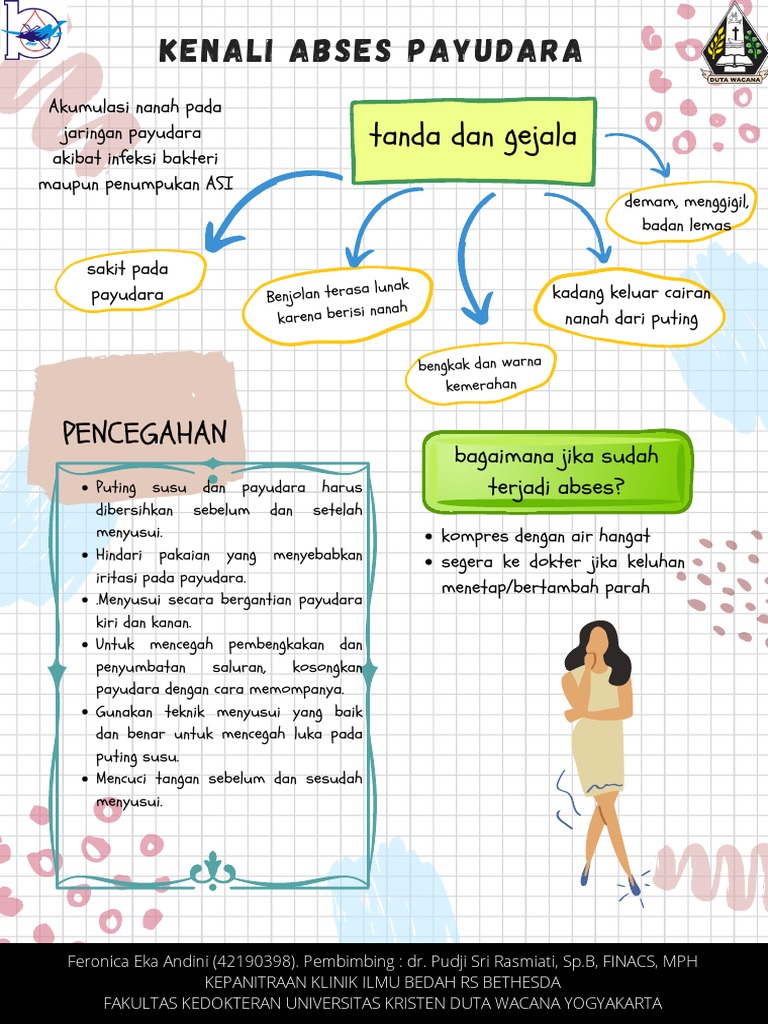 KENALI ABSES PAYUDARA
DUTA WACANA
Akumulasi nanah pada
jaringan payudara
akibat infeksi bakteri
maupun penumpukan ASI
tanda dan gejala
demam, menggigil,
badan lemas
sakit pada
payudara
Benjolan terasa lunak
karena berisi nanah
kadang keluar cairan
nanah dari puting
bengkak dan warna
kemerahan
PENCEGAHAN
• Puting susu dan payudara harus
dibersihkan sebelum dan setelah
menyusui.
• Hindari pakaian yang menyebabkan
iritasi pada payudara.
• .Menyusui secara bergantian payudara
kiri dan kanan.
• Untuk mencegah pembengkakan dan
penyumbatan saluran, kosongkan
payudara dengan cara memompanya.
• Gunakan teknik menyusui yang baik
dan benar untuk mencegah luka pada
puting susu.
• Mencuci tangan sebelum dan sesudah
menyusui.
bagaimana jika sudah
terjadi abses?
• kompres dengan air hangat
• segera ke dokter jika keluhan
menetap/bertambah parah
Feronica Eka Andini (42190398). Pembimbing : dr. Pudji Sri Rasmiati, Sp.B, FINACS, MPH
KEPANITRAAN KLINIK ILMU BEDAH RS BETHESDA
FAKULTAS KEDOKTERAN UNIVERSITAS KRISTEN DUTA WACANA YOGYAKARTA